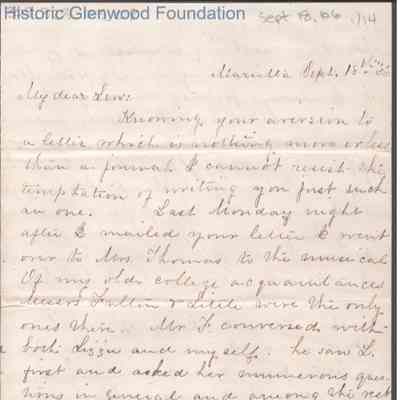 Historic Glenwood Foundation
Sept 18, 1714
Marietta Sept. 18th
My dear Lew:
Knowing your aversion to
a letter which is nothing more or less
than a journal I cannot resist the
temptation of writing you just such
an one. Last Monday night
after I mailed your letter I went
over to Mrs. Thomas to the musical
Of my older college acquaintances
Messrs Fulton & Little were the only
ones there. Mr F conversed with
both Lizzie and myself. he saw L.
first and asked her numerous ques-
tions in general and among the rest